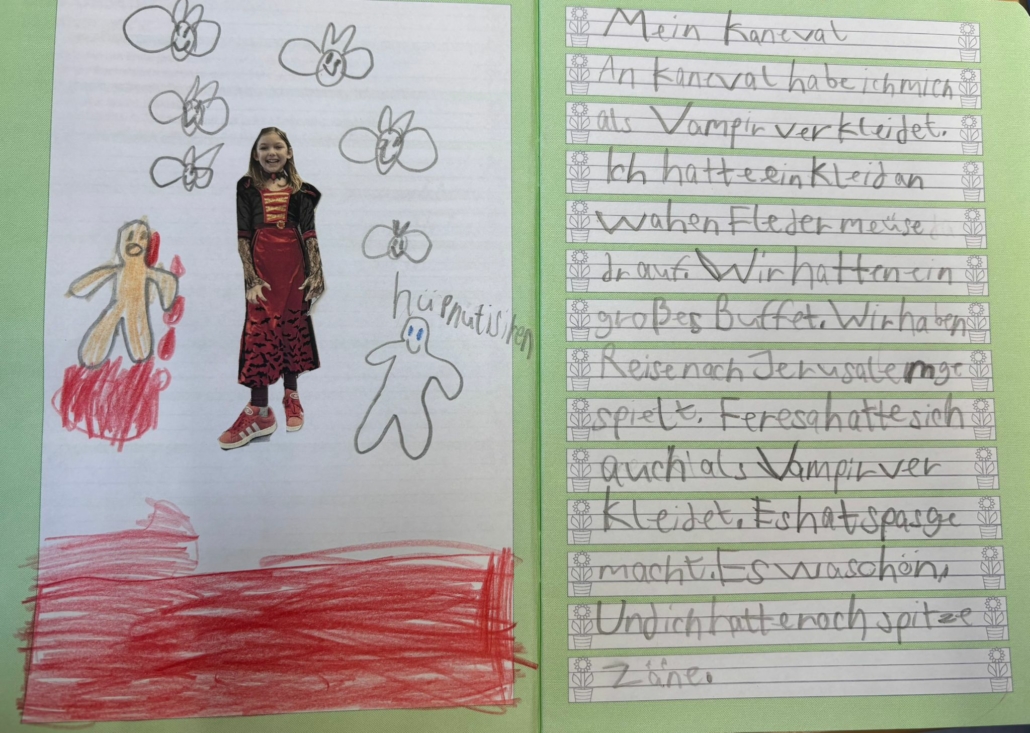 hüpnütisiren
Mein kaneval
An kaneval habe ich mich
als Vampir ver kleidet.
Ich hatte ein Kleid an
wahen Fleder meüse
dr auf. Wir hatten ein
großes Buffet. Wir haben
Reise nach Jerusalem ge
spielt. Feresa hatte sich
auch als Vampir ver
kleidet. Es hat spas ge
macht. Es wa schön,
Und ich hatte noch spitze
zäne.